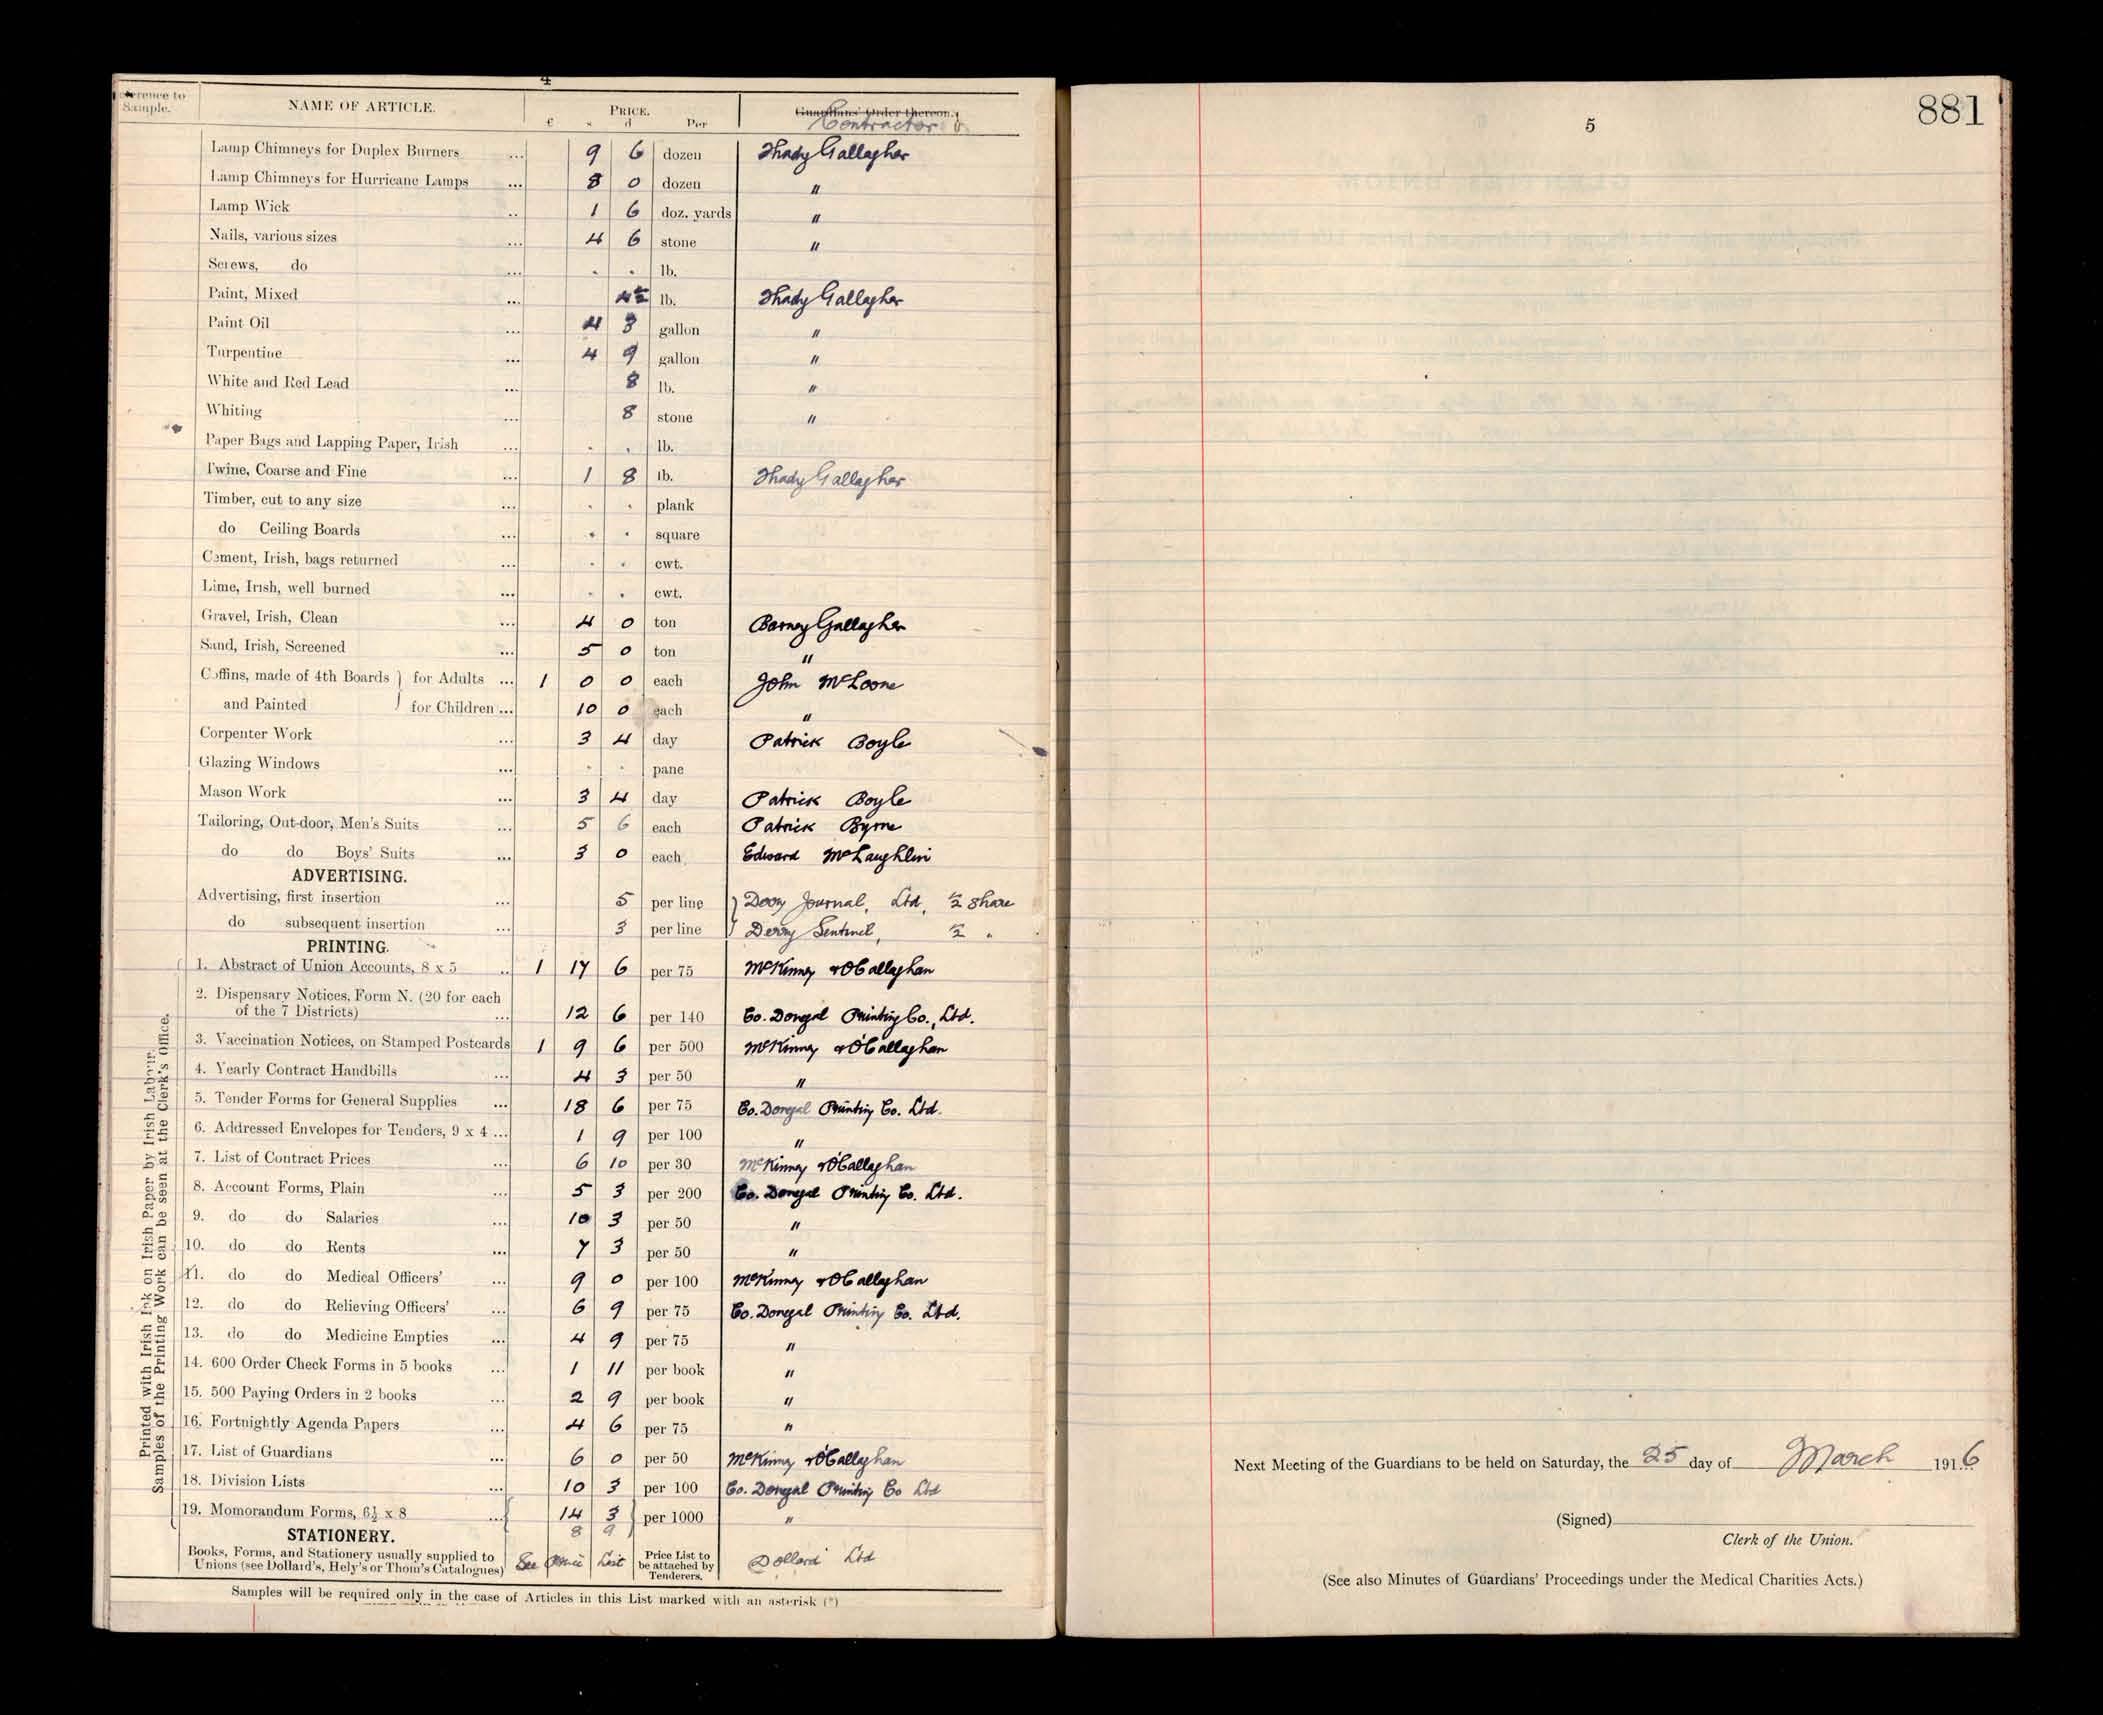 4
Reference to Sample. NAME OF ARTICLE. PRICE. Guardians' Order thereon.
£ s d Per Contractor
Lamp Chimneys for Duplex Burners ... 9 6 dozen Thady Gallagher
Lamp Chimneys for Hurricane Lamps ... 8 0 dozen "
Lamp Wick ... 1 6 doz. yards "
Nails, various sizes ... 4 6 stone "
Screws, do ... . . lb.
Paint, Mixed ... 4½ lb. Thady Gallagher
Paint Oil ... 4 3 gallon "
Turpentine ... 4 9 gallon "
White and Red Lead ... 8 lb. "
Whiting ... 8 stone "
Paper Bags and Lapping Paper, Irish ... . . lb.
Twine, Coarse and Fine ... 1 8 lb. Thady Gallagher
Timber, cut to any size ... . . plank
do Ceiling Boards ... . . square
Cement, Irish, bags returned ... . . cwt.
Lime, Irish, well burned ... . . cwt.
Gravel, Irish, Clean ... 4 0 ton Barney Gallagher
Sand, Irish, Screened ... 5 0 ton "
Coffins, made of 4th Boards } for Adults ... 1 0 0 each John McLoone
and Painted } for Children ... 10 0 each "
Corpenter Work ... 3 4 day Patrick Boyle
Glazing Windows ... . . pane
Mason Work ... 3 4 day Patrick Boyle
Tailoring, Out-door, Men's Suits ... 5 6 each Patrick Byrne
do do Boys' Suits ... 3 0 each Edward McLaughlin
ADVERTISING.
Advertising, first insertion ... 5 per line } Derry Journal, Ltd, ½ share
do subsequent insertion ... 3 per line } Derry Sentinel, ½ "
PRINTING.
1. Abstract of Union Accounts, 8 x 5 ... 1 17 6 per 75 McKinney & O'Callaghan
2. Dispensary Notices, Form N. (20 for each
of the 7 Districts) ... 12 6 per 140 Co. Donegal Printing Co., Ltd.
3. Vaccination Notices, on Stamped Postcards 1 9 6 per 500 McKinney & O'Callaghan
4. Yearly Contract Handbills ... 4 3 per 50 "
5. Tender Forms for General Supplies ... 18 6 per 75 Co. Donegal Printing Co. Ltd.
6. Addressed Envelopes for Tenders, 9 x 4 ... 1 9 per 100 "
7. List of Contract Prices ... 6 10 per 30 McKinney & O'Callaghan
8. Account Forms, Plain ... 5 3 per 200 Co. Donegal Printing Co. Ltd.
9. do do Salaries ... 10 3 per 50 "
10. do do Rents ... 7 3 per 50 "
11. do do Medical Officers' ... 9 0 per 100 McKinney & O'Callaghan
12. do do Relieving Officers' ... 6 9 per 75 Co. Donegal Printing Co. Ltd.
13. do do Medicine Empties ... 4 9 per 75 "
14. 600 Order Check Forms in 5 books ... 1 11 per book "
15. 500 Paying Orders in 2 books ... 2 9 per book "
16. Fortnightly Agenda Papers ... 4 6 per 75 "
17. List of Guardians ... 6 0 per 50 McKinney & O'Callaghan
18. Division Lists ... 10 3 per 100 Co. Donegal Printing Co Ltd
19. Momorandum Forms, 6½ x 8 ... { 14 3 } per 1000 "
8 9
Printed with Irish Ink on Irish Paper by Irish Labour.
Samples of the Printing Work can be seen at the Clerk's Office.
STATIONERY.
Books, Forms, and Stationery usually supplied to
Unions (see Dollard's, Hely's or Thom's Catalogues) See Price List Price List to be attached by Tenderers. Dollard Ltd
Samples will be required only in the case of Articles in this List marked with an asterisk (*)
5
881
Next Meeting of the Guardians to be held on Saturday, the 25 day of March 1916
(Signed)
Clerk of the Union.
(See also Minutes of Guardians' Proceedings under the Medical Charities Acts.)